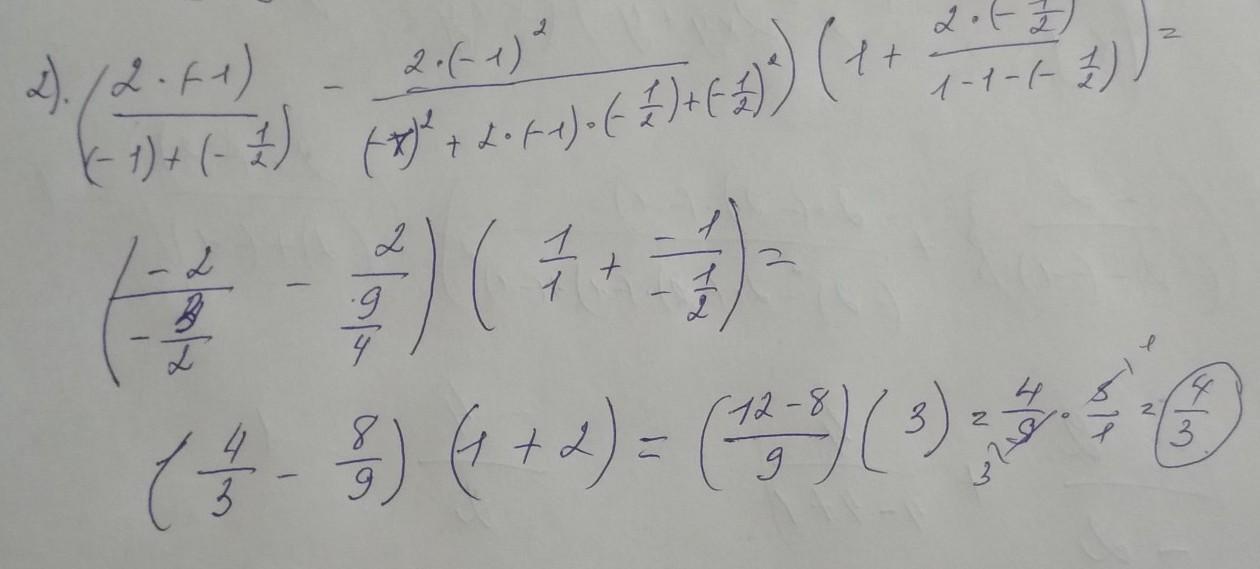 2). (2·(-1)/((-1)+(-1/2)) - 2·(-1)²/((-1)²+2·(-1)·(-1/2)+(-1/2)²)) (1+2·(-1/2)/(1-1-(-1/2)))=
(-2/(-3/2) - 2/(9/4)) (1/1 + -1/(-1/2))=
(4/3 - 8/9) (1+2) = ((12-8)/9) (3) = 4/9 · 3/1 = 4/3
3 1